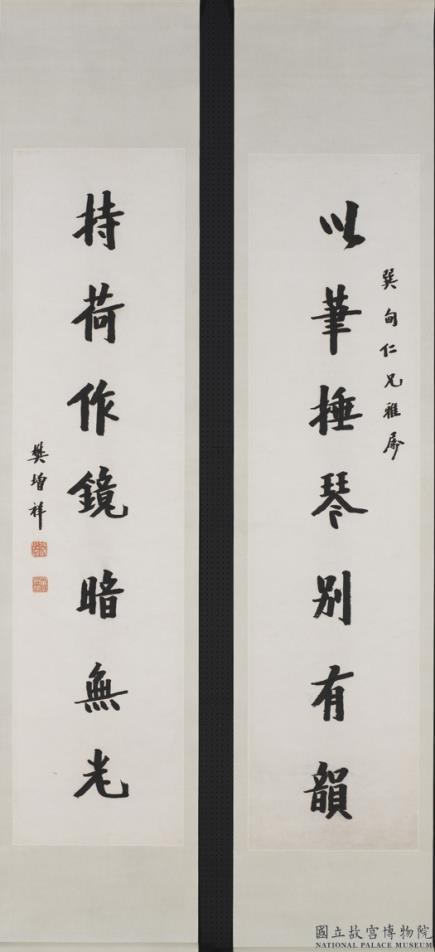 以筆捶琴別有韻
巽甸仁兄雅屬
持荷作鏡暗無光
樊增祥
國立故宮博物院
NATIONAL PALACE MUSEUM